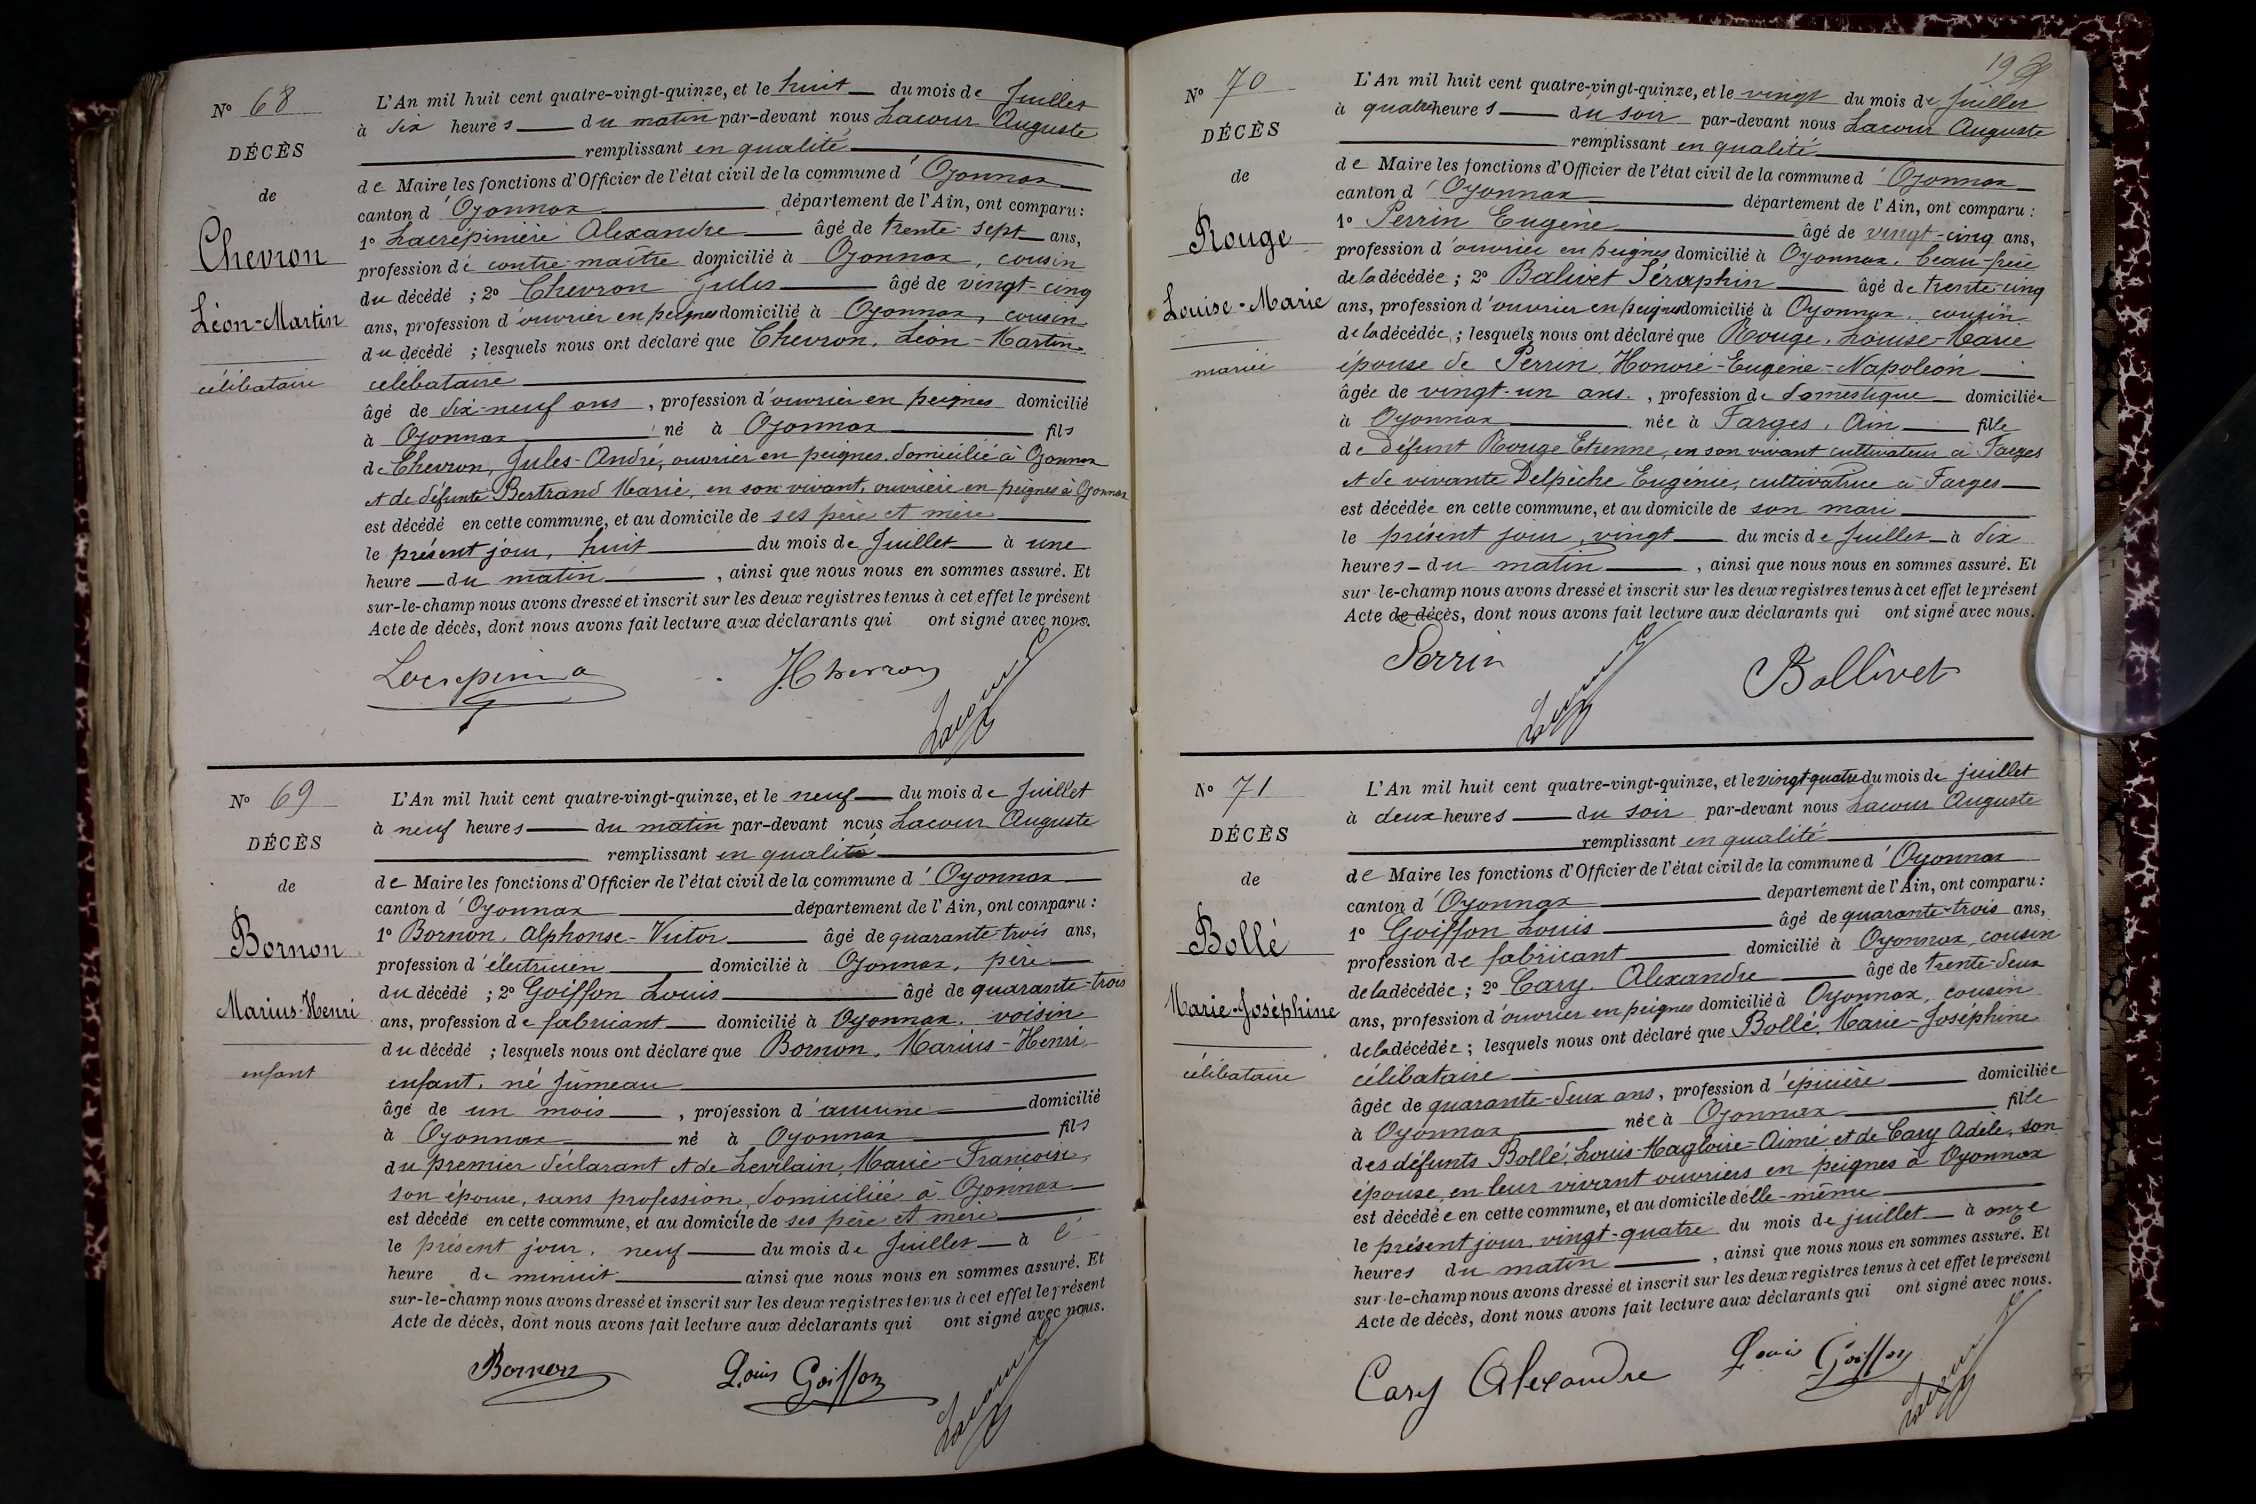 N° 68
DÉCÈS
de
Chevron
Léon-Martin
célibataire
L'An mil huit cent quatre-vingt-quinze, et le huit du mois de Juillet
à dix heures du matin par-devant nous Lacour Auguste
remplissant en qualité
de Maire les fonctions d'Officier de l'état civil de la commune d'Oyonnax
canton d'Oyonnax département de l'Ain, ont comparu :
1° Lacrépinière Alexandre âgé de trente-sept ans,
profession de contre-maître domicilié à Oyonnax, cousin
du décédé ; 2° Chevron Jules âgé de vingt-cinq
ans, profession d'ouvrier en peignes domicilié à Oyonnax, cousin
du décédé ; lesquels nous ont déclaré que Chevron, Léon-Martin
célibataire
âgé de dix-neuf ans, profession d'ouvrier en peignes domicilié
à Oyonnax né à Oyonnax fils
de Chevron, Jules-André, ouvrier en peignes, domicilié à Oyonnax
et de défunte Bertrand Marie, en son vivant, ouvrière en peignes à Oyonnax
est décédé en cette commune, et au domicile de ses père et mère
le présent jour, huit du mois de Juillet à une
heure du matin, ainsi que nous nous en sommes assuré. Et
sur-le-champ nous avons dressé et inscrit sur les deux registres tenus à cet effet le présent
Acte de décès, dont nous avons fait lecture aux déclarants qui ont signé avec nous.
J. Chevron
Lacour
N° 69
DÉCÈS
de
Bornon
Marius-Henri
enfant
L'An mil huit cent quatre-vingt-quinze, et le neuf du mois de Juillet
à neuf heures du matin par-devant nous Lacour Auguste
remplissant en qualité
de Maire les fonctions d'Officier de l'état civil de la commune d'Oyonnax
canton d'Oyonnax département de l'Ain, ont comparu :
1° Bornon, Alphonse-Victor âgé de quarante-trois ans,
profession d'électricien domicilié à Oyonnax, père
du décédé ; 2° Goiffon Louis âgé de quarante-trois
ans, profession de fabricant domicilié à Oyonnax, voisin
du décédé ; lesquels nous ont déclaré que Bornon, Marius-Henri
enfant, né jumeau
âgé de un mois, profession d'aucune domicilié
à Oyonnax né à Oyonnax fils
du premier déclarant et de Levilain, Marie-Françoise,
son épouse, sans profession, domiciliée à Oyonnax
est décédé en cette commune, et au domicile de ses père et mère
le présent jour, neuf du mois de Juillet à l'
heure de minuit ainsi que nous nous en sommes assuré. Et
sur-le-champ nous avons dressé et inscrit sur les deux registres tenus à cet effet le présent
Acte de décès, dont nous avons fait lecture aux déclarants qui ont signé avec nous.
Bornon Louis Goiffon
Lacour
19
N° 70
DÉCÈS
de
Rouge
Louise-Marie
mariée
L'An mil huit cent quatre-vingt-quinze, et le vingt du mois de Juillet
à quatre heures du soir par-devant nous Lacour Auguste
remplissant en qualité
de Maire les fonctions d'Officier de l'état civil de la commune d'Oyonnax
canton d'Oyonnax département de l'Ain, ont comparu :
1° Perrin Eugène âgé de vingt-cinq ans,
profession d'ouvrier en peignes domicilié à Oyonnax, beau-frère
de la décédée ; 2° Balivet Séraphin âgé de trente-cinq
ans, profession d'ouvrier en peignes domicilié à Oyonnax, cousin
de la décédée ; lesquels nous ont déclaré que Rouge, Louise-Marie
épouse de Perrin, Honoré-Eugène-Napoléon
âgée de vingt-un ans, profession de domestique domiciliée
à Oyonnax née à Farges, Ain fille
de défunt Rouge Etienne, en son vivant cultivateur à Farges
et de vivante Delpèche Eugénie, cultivatrice à Farges
est décédée en cette commune, et au domicile de son mari
le présent jour, vingt du mois de Juillet à dix
heures du matin, ainsi que nous nous en sommes assuré. Et
sur-le-champ nous avons dressé et inscrit sur les deux registres tenus à cet effet le présent
Acte de décès, dont nous avons fait lecture aux déclarants qui ont signé avec nous.
Perrin Lacour Bollivet
N° 71
DÉCÈS
de
Bollé
Marie-Joséphine
célibataire
L'An mil huit cent quatre-vingt-quinze, et le vingt-quatre du mois de juillet
à deux heures du soir par-devant nous Lacour Auguste
remplissant en qualité
de Maire les fonctions d'Officier de l'état civil de la commune d'Oyonnax
canton d'Oyonnax département de l'Ain, ont comparu :
1° Goiffon Louis âgé de quarante-trois ans,
profession de fabricant domicilié à Oyonnax, cousin
de la décédée ; 2° Cary Alexandre âgé de trente-deux
ans, profession d'ouvrier en peignes domicilié à Oyonnax, cousin
de la décédée ; lesquels nous ont déclaré que Bollé, Marie-Joséphine
célibataire
âgée de quarante-deux ans, profession d'épicière domiciliée
à Oyonnax née à Oyonnax fille
des défunts Bollé, Louis-Magloire-Aimé et de Cary Adèle, son
épouse, en leur vivant ouvriers en peignes à Oyonnax
est décédée en cette commune, et au domicile d'elle-même
le présent jour vingt-quatre du mois de juillet à onze
heures du matin, ainsi que nous nous en sommes assuré. Et
sur-le-champ nous avons dressé et inscrit sur les deux registres tenus à cet effet le présent
Acte de décès, dont nous avons fait lecture aux déclarants qui ont signé avec nous.
Cary Alexandre Louis Goiffon
Lacour